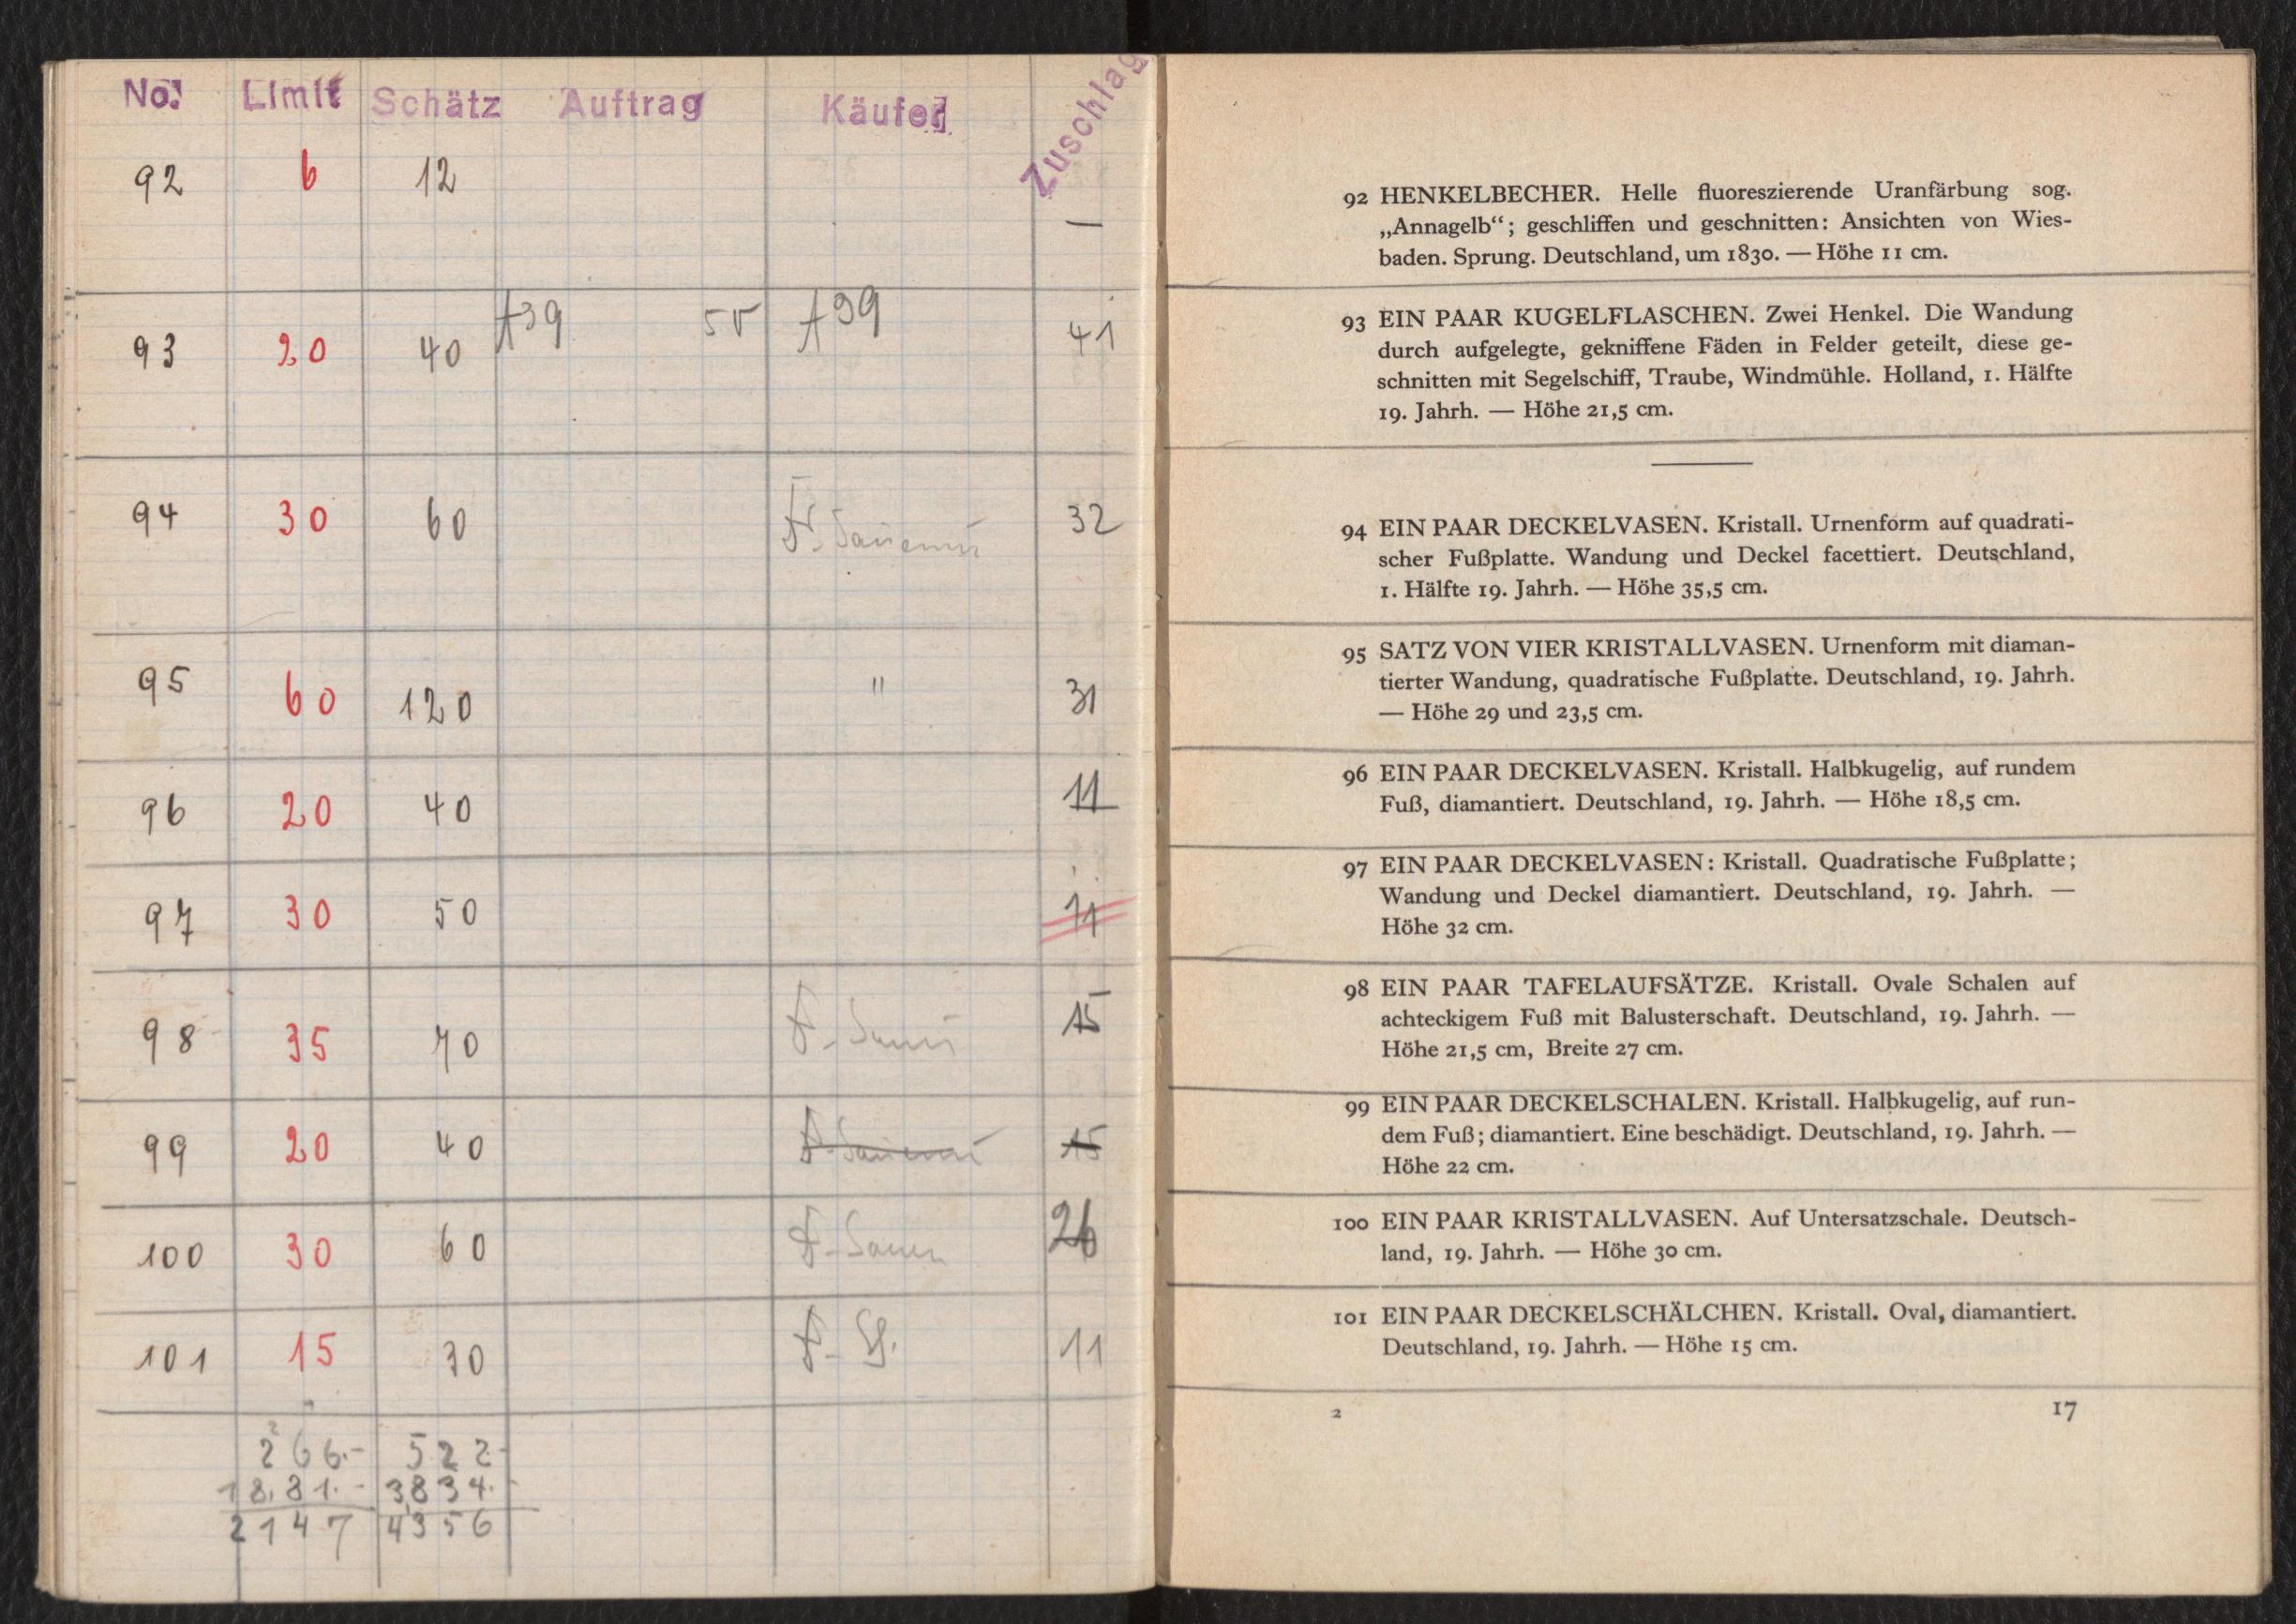 No. Limit Schätz Auftrag Käufer Zuschlag
92 6 12 —
93 20 40 A39 55 A39 41
94 30 60 32
95 60 120 " 31
96 20 40 11
97 30 50 11
98 35 70 15
99 20 40 15
100 30 60 26
101 15 30 11
266.- 522-
18.81.- 3834.-
2147 4356
92 HENKELBECHER. Helle fluoreszierende Uranfärbung sog.
„Annagelb“; geschliffen und geschnitten: Ansichten von Wies-
baden. Sprung. Deutschland, um 1830. — Höhe 11 cm.
93 EIN PAAR KUGELFLASCHEN. Zwei Henkel. Die Wandung
durch aufgelegte, gekniffene Fäden in Felder geteilt, diese ge-
schnitten mit Segelschiff, Traube, Windmühle. Holland, 1. Hälfte
19. Jahrh. — Höhe 21,5 cm.
94 EIN PAAR DECKELVASEN. Kristall. Urnenform auf quadrati-
scher Fußplatte. Wandung und Deckel facettiert. Deutschland,
1. Hälfte 19. Jahrh. — Höhe 35,5 cm.
95 SATZ VON VIER KRISTALLVASEN. Urnenform mit diaman-
tierter Wandung, quadratische Fußplatte. Deutschland, 19. Jahrh.
— Höhe 29 und 23,5 cm.
96 EIN PAAR DECKELVASEN. Kristall. Halbkugelig, auf rundem
Fuß, diamantiert. Deutschland, 19. Jahrh. — Höhe 18,5 cm.
97 EIN PAAR DECKELVASEN: Kristall. Quadratische Fußplatte;
Wandung und Deckel diamantiert. Deutschland, 19. Jahrh. —
Höhe 32 cm.
98 EIN PAAR TAFELAUFSÄTZE. Kristall. Ovale Schalen auf
achteckigem Fuß mit Balusterschaft. Deutschland, 19. Jahrh. —
Höhe 21,5 cm, Breite 27 cm.
99 EIN PAAR DECKELSCHALEN. Kristall. Halbkugelig, auf run-
dem Fuß; diamantiert. Eine beschädigt. Deutschland, 19. Jahrh. —
Höhe 22 cm.
100 EIN PAAR KRISTALLVASEN. Auf Untersatzschale. Deutsch-
land, 19. Jahrh. — Höhe 30 cm.
101 EIN PAAR DECKELSCHÄLCHEN. Kristall. Oval, diamantiert.
Deutschland, 19. Jahrh. — Höhe 15 cm.
2 17